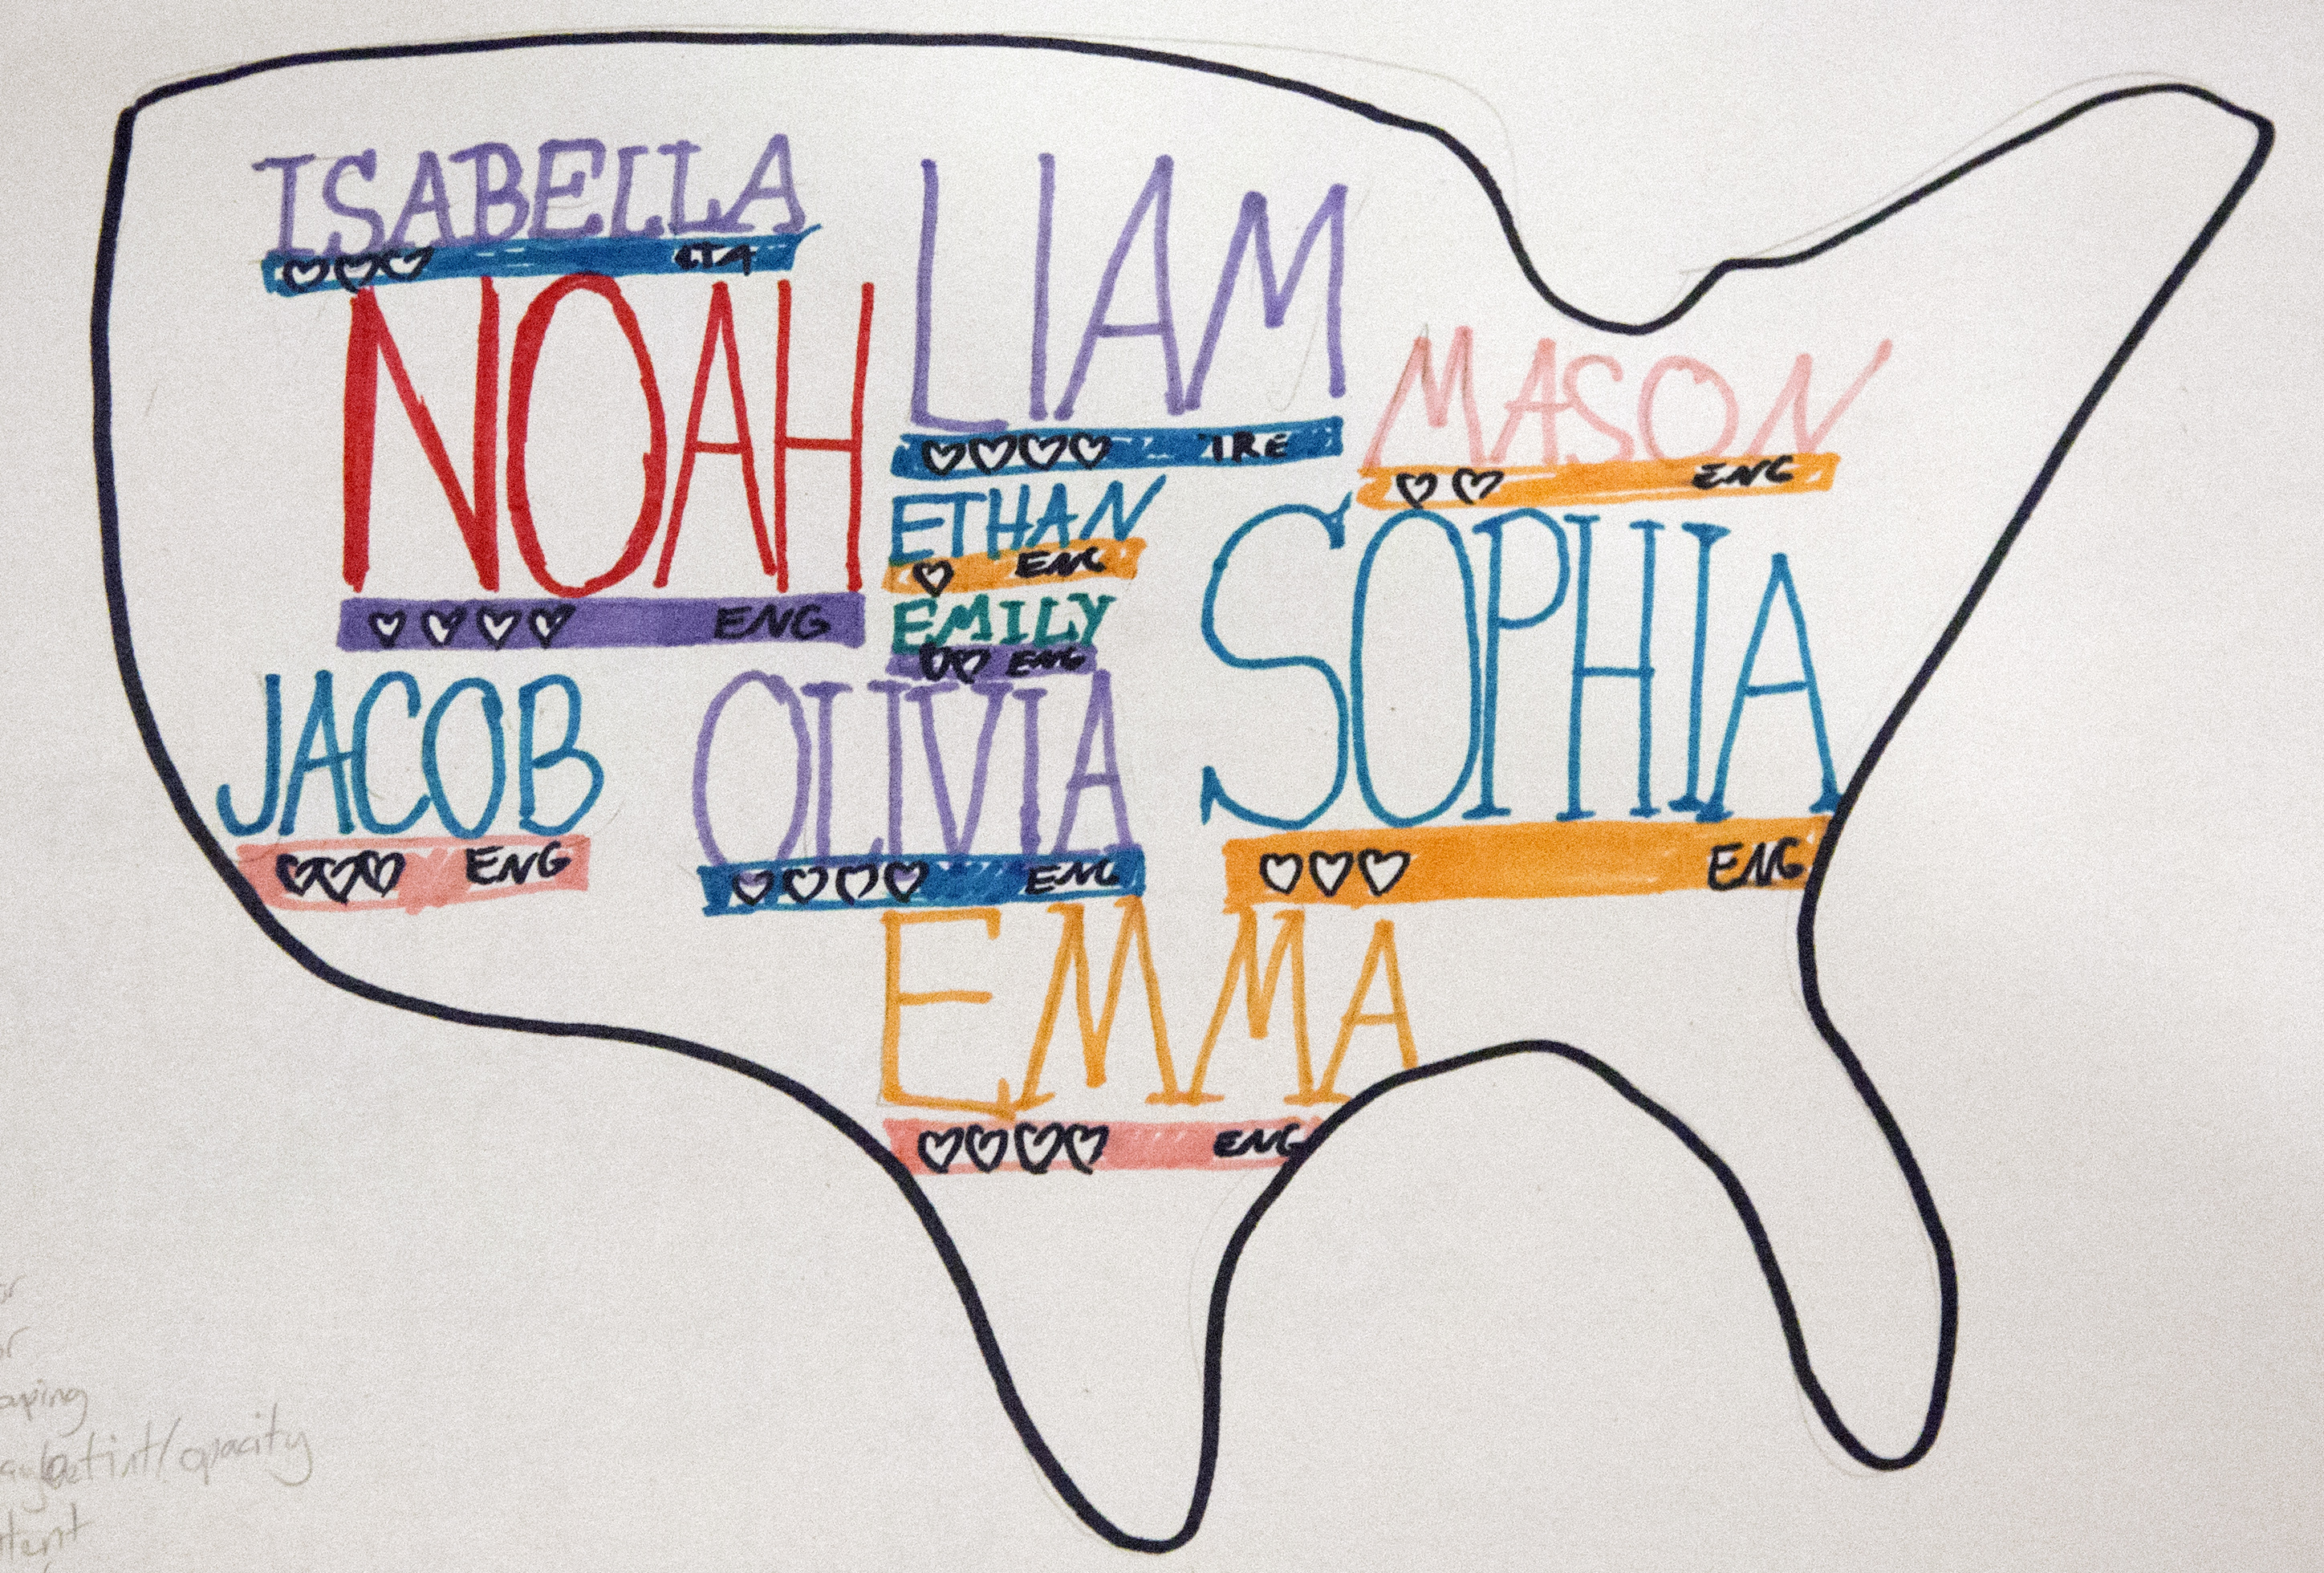 ISABELLA
♡♡♡ ITA
LIAM
♡♡♡♡ IRE
NOAH
♡♡♡♡ ENG
MASON
♡♡ ENG
ETHAN
♡ ENG
EMILY
♡♡ ENG
SOPHIA
♡♡♡ ENG
JACOB
♡♡♡ ENG
OLIVIA
♡♡♡♡ ENG
EMMA
♡♡♡♡ ENG
tint/opacity